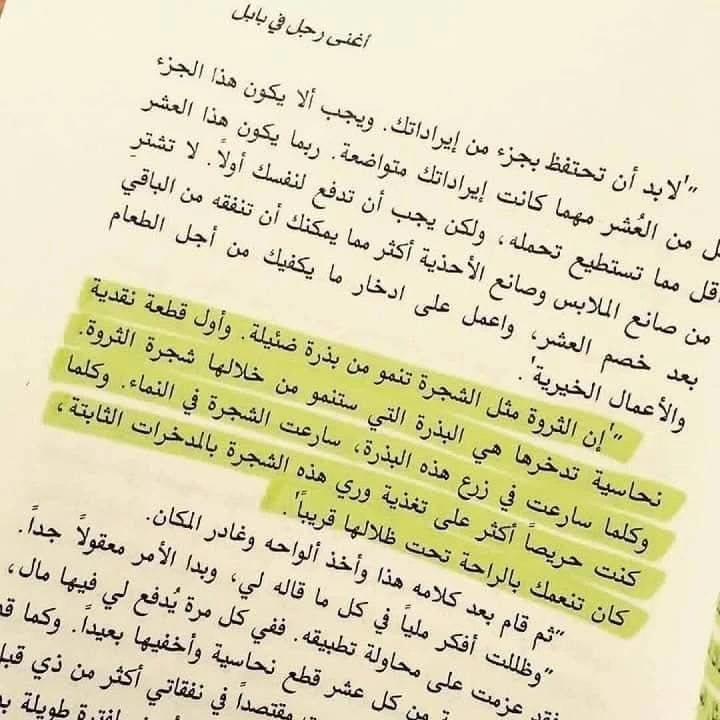 أغنى رجل في بابل
"'لابد أن تحتفظ بجزء من إيراداتك. ويجب ألا يكون هذا الجزء
من العُشر مهما كانت إيراداتك متواضعة. ربما يكون هذا العشر
مما تستطيع تحمله، ولكن يجب أن تدفع لنفسك أولاً. لا تشترِ
من صانع الملابس وصانع الأحذية أكثر مما يمكنك أن تنفقه من الباقي
بعد خصم العشر، واعمل على ادخار ما يكفيك من أجل الطعام
والأعمال الخيرية'.
"'إن الثروة مثل الشجرة تنمو من بذرة ضئيلة. وأول قطعة نقدية
نحاسية تدخرها هي البذرة التي ستنمو من خلالها شجرة الثروة.
وكلما سارعت في زرع هذه البذرة، سارعت الشجرة في النماء. وكلما
كنت حريصاً أكثر على تغذية وري هذه الشجرة بالمدخرات الثابتة،
كان تنعمك بالراحة تحت ظلالها قريباً'.
"ثم قام بعد كلامه هذا وأخذ ألواحه وغادر المكان.
"وظللت أفكر ملياً في كل ما قاله لي، وبدا الأمر معقولاً جداً.
عزمت على محاولة تطبيقه. ففي كل مرة يُدفع لي فيها مال،
من كل عشر قطع نحاسية وأخفيها بعيداً. وكما
مقتصداً في نفقاتي أكثر من ذي
لفترة طويلة